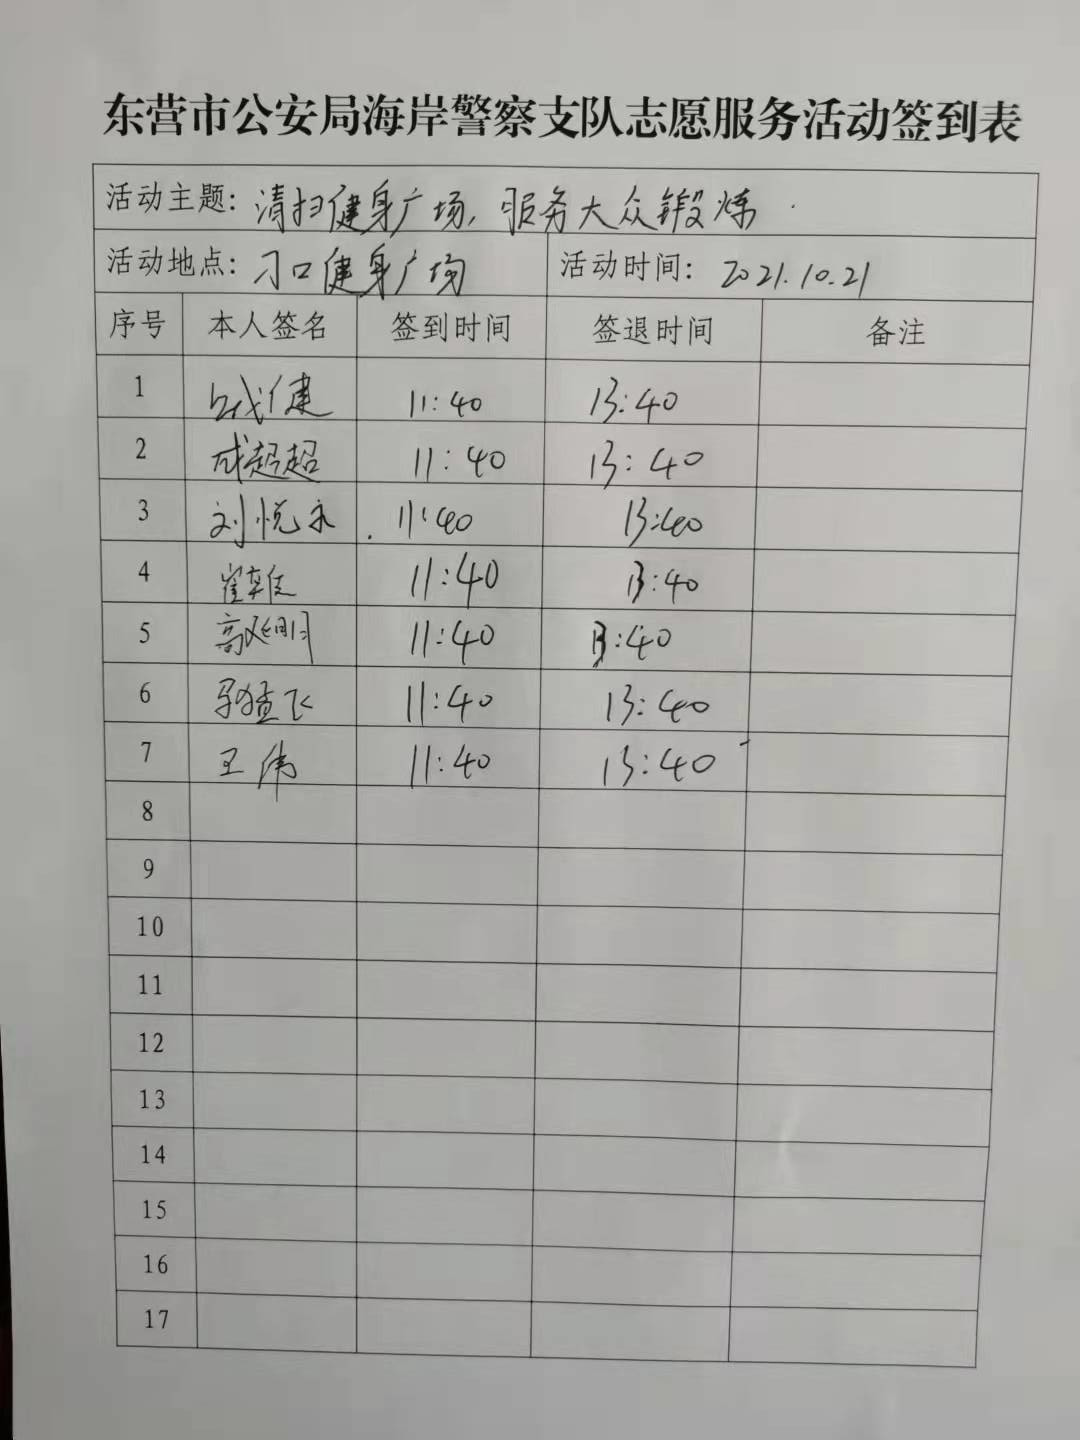 东营市公安局海岸警察支队志愿服务活动签到表
活动主题: 清扫健身广场, 服务大众锻炼
活动地点: 刁口健身广场 活动时间: 2021.10.21
序号 本人签名 签到时间 签退时间 备注
1 健 11:40 13:40
2 成超超 11:40 13:40
3 刘悦 11:40 13:40
4 崔 11:40 13:40
5 高延明 11:40 13:40
6 飞 11:40 13:40
7 王伟 11:40 13:40
8
9
10
11
12
13
14
15
16
17